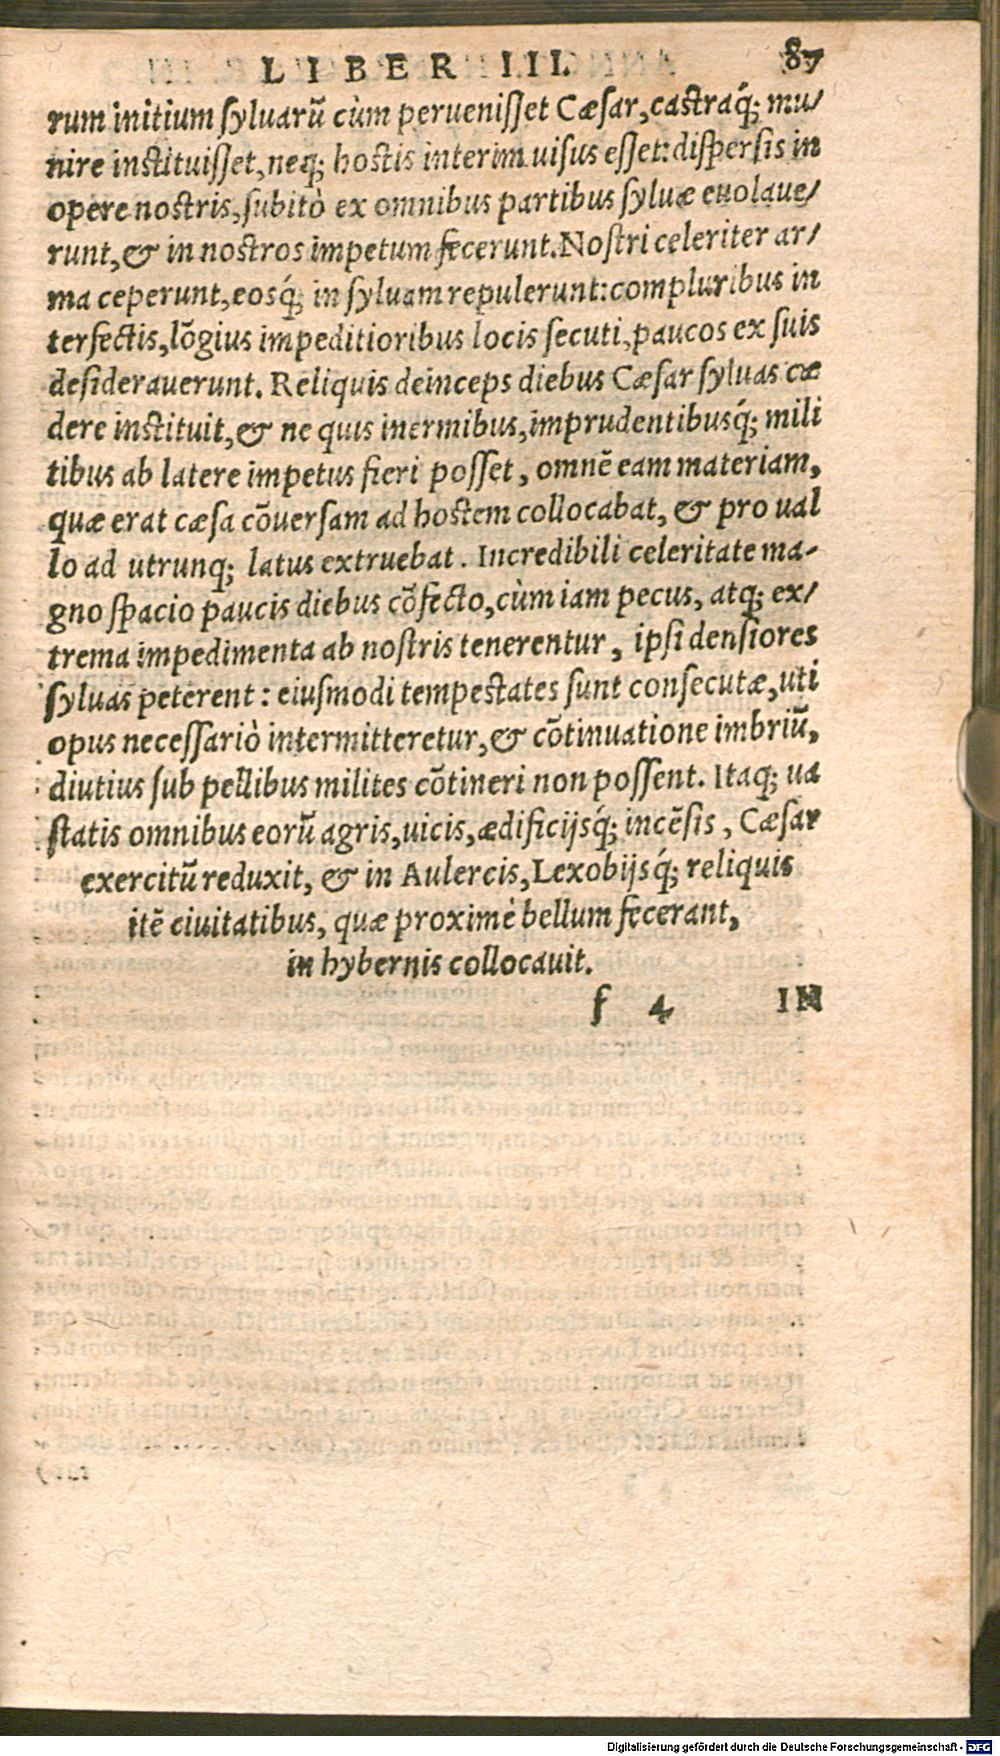 LIBER III. 87
rum initium ſyluarũ cùm perueniſſet Cæſar, caſtraq́; mu/
nire inſtituiſſet, neq; hoſtis interim uiſus eſſet: diſperſis in
opere noſtris, ſubitò ex omnibus partibus ſyluæ euolaue/
runt, & in noſtros impetum fecerunt. Noſtri celeriter ar/
ma ceperunt, eosq́; in ſyluam repulerunt: compluribus in
terfectis, lõgius impeditioribus locis ſecuti, paucos ex ſuis
deſiderauerunt. Reliquis deinceps diebus Cæſar ſyluas cæ
dere inſtituit, & ne quis inermibus, imprudentibusq́; mili
tibus ab latere impetus fieri poſſet, omnẽ eam materiam,
quæ erat cæſa cõuerſam ad hoſtem collocabat, & pro ual
lo ad utrunq; latus extruebat. Incredibili celeritate ma-
gno ſpacio paucis diebus cõfecto, cùm iam pecus, atq; ex/
trema impedimenta ab noſtris tenerentur, ipſi denſiores
ſyluas peterent: eiuſmodi tempeſtates ſunt conſecutæ, uti
opus neceſſariò intermitteretur, & cõtinuatione imbriũ,
diutius ſub pellibus milites cõtineri non poſſent. Itaq; ua
ſtatis omnibus eorũ agris, uicis, ædificijsq́; incẽſis, Cæſar
exercitũ reduxit, & in Aulercis, Lexobijsq́; reliquis
itẽ ciuitatibus, quæ proximè bellum fecerant,
in hybernis collocauit.
f 4 IN
Digitalisierung gefördert durch die Deutsche Forschungsgemeinschaft - DFG